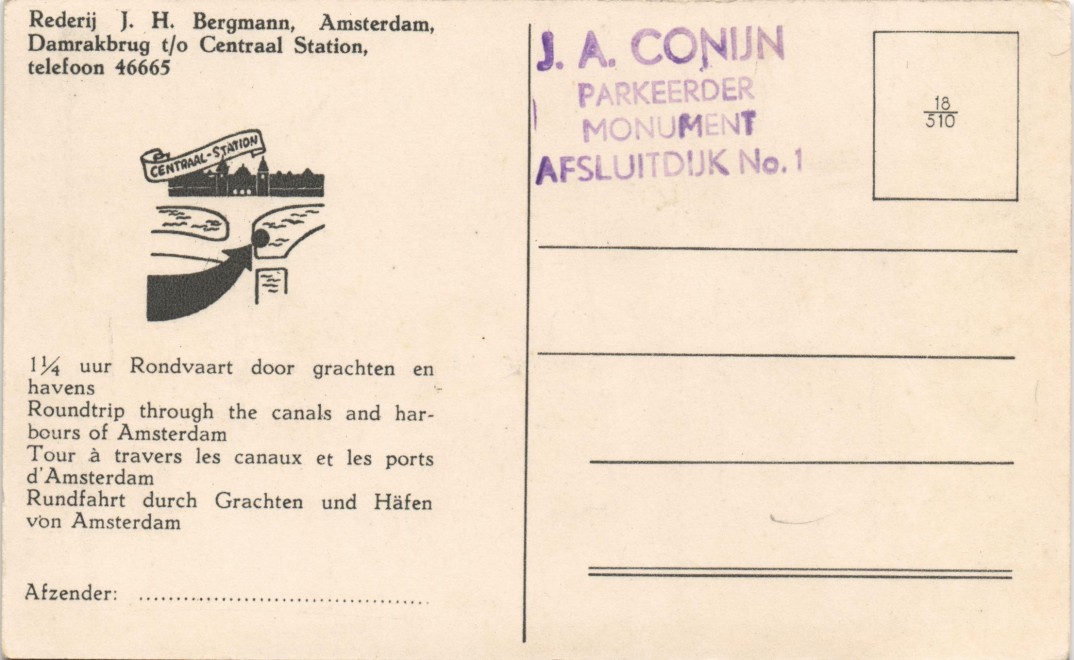 Rederij J. H. Bergmann, Amsterdam,
Damrakbrug t/o Centraal Station,
telefoon 46665
CENTRAAL-STATION
1¼ uur Rondvaart door grachten en
havens
Roundtrip through the canals and har-
bours of Amsterdam
Tour à travers les canaux et les ports
d'Amsterdam
Rundfahrt durch Grachten und Häfen
von Amsterdam
Afzender: ......................................
J. A. CONIJN
PARKEERDER
MONUMENT
AFSLUITDIJK No. 1
18
510